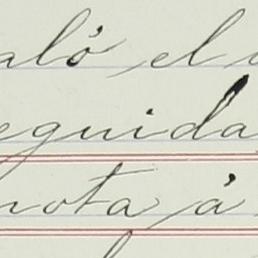 aló el
eguida
nota á